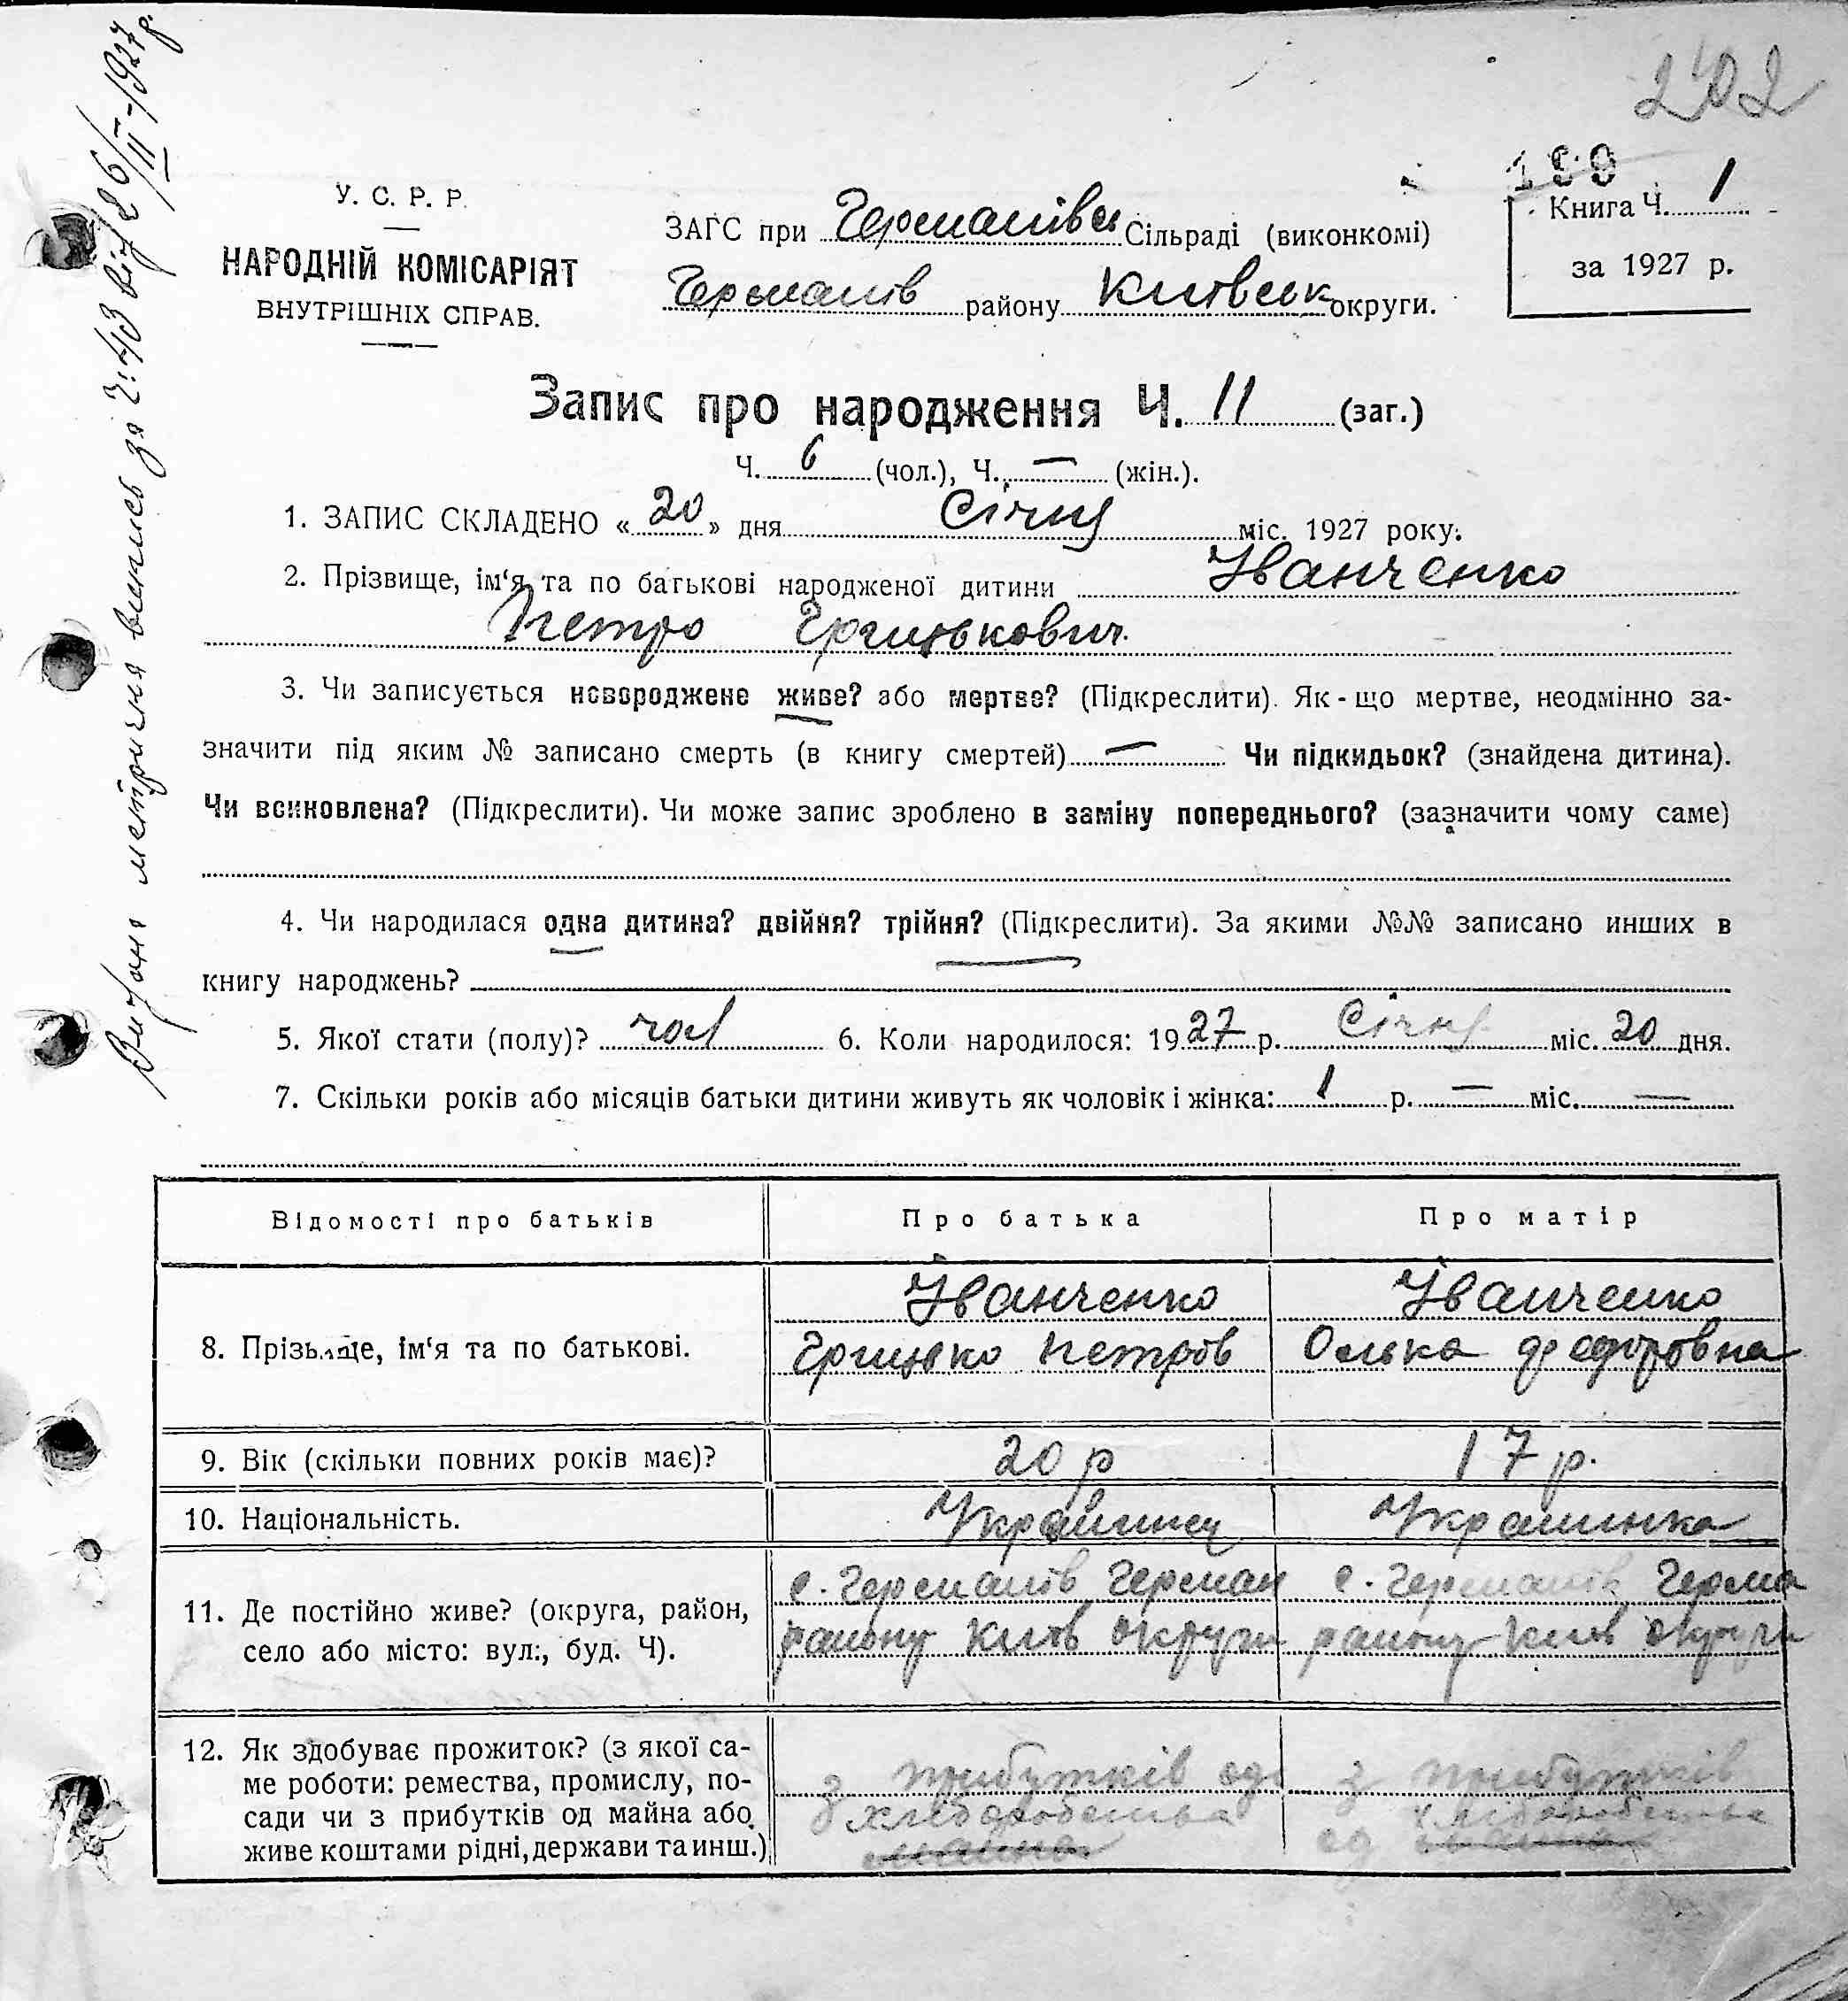 202
199
Книга Ч. 1
за 1927 р.
У. С. Р. Р.
НАРОДНІЙ КОМІСАРІЯТ
ВНУТРІШНІХ СПРАВ.
ЗАГС при Германівськ Сільраді (виконкомі)
Германів району Київськ округи.
Запис про народження Ч. 11 (заг.)
Ч. 6 (чол.), Ч. — (жін.).
1. ЗАПИС СКЛАДЕНО « 20 » дня Січня міс. 1927 року.
2. Прізвище, ім‘я та по батькові народженої дитини Іванченко
Петро Грицькович
3. Чи записується новороджене живе? або мертве? (Підкреслити). Як-що мертве, неодмінно за-
значити під яким № записано смерть (в книгу смертей) — Чи підкидьок? (знайдена дитина).
Чи всиновлена? (Підкреслити). Чи може запис зроблено в заміну попереднього? (зазначити чому саме)
4. Чи народилася одна дитина? двійня? трійня? (Підкреслити). За якими №№ записано инших в
книгу народжень? —
5. Якої стати (полу)? чол 6. Коли народилося: 1927 р. Січня міс. 20 дня.
7. Скільки років або місяців батьки дитини живуть як чоловік і жінка: 1 р. — міс. —
Відомості про батьків Про батька Про матір
8. Прізвище, ім‘я та по батькові. Іванченко Іванченко
Грицько Петров Олька Федоровна
9. Вік (скільки повних років має)? 20 р 17 р.
10. Національність. Українец Украинка
11. Де постійно живе? (округа, район,
село або місто: вул:, буд. Ч).
с. Германів Герман с. Германів Герма
району Київ округи району Київ округи
12. Як здобуває прожиток? (з якої са-
ме роботи: ремества, промислу, по-
сади чи з прибутків од майна або
живе коштами рідні, держави та инш.)
з прибутків од з прибутків
хліборобства хліборобства
майна од майна
Видана метрична випись за Ч: 43 від 26/II-1927 р.